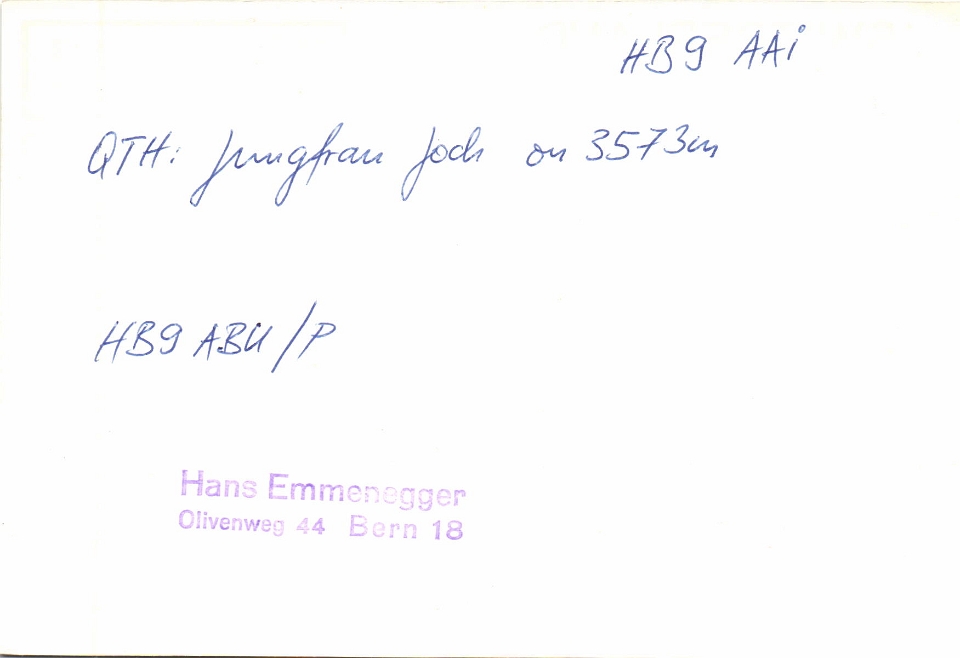 HB9 AAi
QTH: Jungfrau Joch on 3573m
HB9 ABU/P
Hans Emmenegger
Olivenweg 44 Bern 18